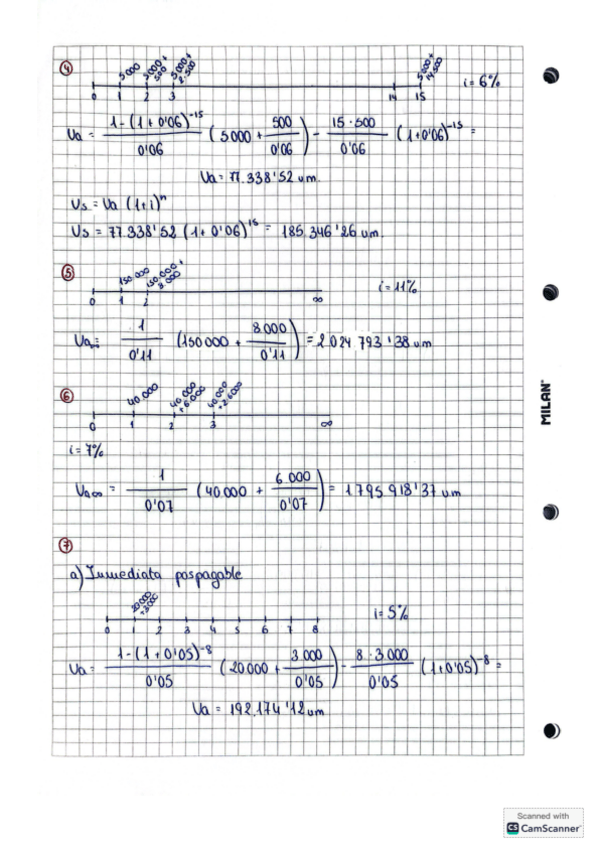 ④
5000
5000+ 500
5000+ 2·500
5000+ 14·500
0 1 2 3 14 15
i = 6%
Va = 1-(1+0'06)^-15 / 0'06 (5000 + 500 / 0'06) - 15·500 / 0'06 (1+0'06)^-15 =
Va = 77.338'52 um.
Vs = Va (1+i)^n
Vs = 77.338'52 (1+0'06)^15 = 185.346'26 um.
⑤
150.000
150.000+ 8.000
0 1 2 ∞
i = 11%
Va∞ = 1 / 0'11 (150000 + 8000 / 0'11) = 2.024.793'38 um
⑥
40.000
40.000 +6.000
40.000 +2·6000
0 1 2 3 ∞
i = 7%
Va∞ = 1 / 0'07 (40.000 + 6.000 / 0'07) = 1.795.918'37 um
⑦
a) Inmediata pospagable
20.000 +3.000
0 1 2 3 4 5 6 7 8
i = 5%
Va = 1-(1+0'05)^-8 / 0'05 (20000 + 3000 / 0'05) - 8·3000 / 0'05 (1+0'05)^-8 =
Va = 192.174'12 um
MILAN®
Scanned with
CS CamScanner